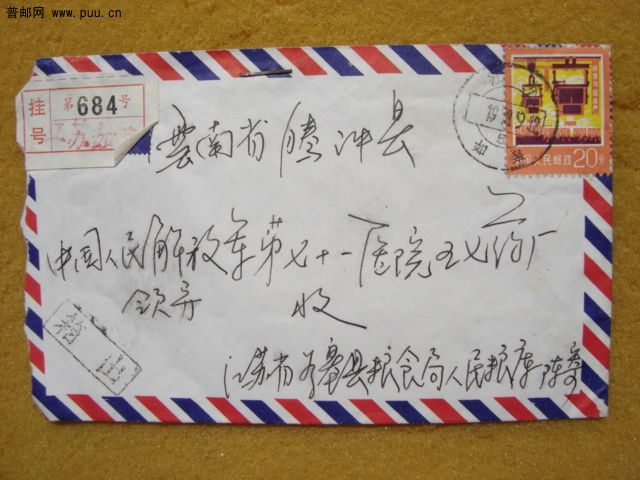 普邮网 www.puu.cn
挂号
第684号
中国人民邮政 20分
雲南省腾冲县
中国人民解放军第七十一医院五七药厂
收
江苏省如皋县粮食局人民粮库